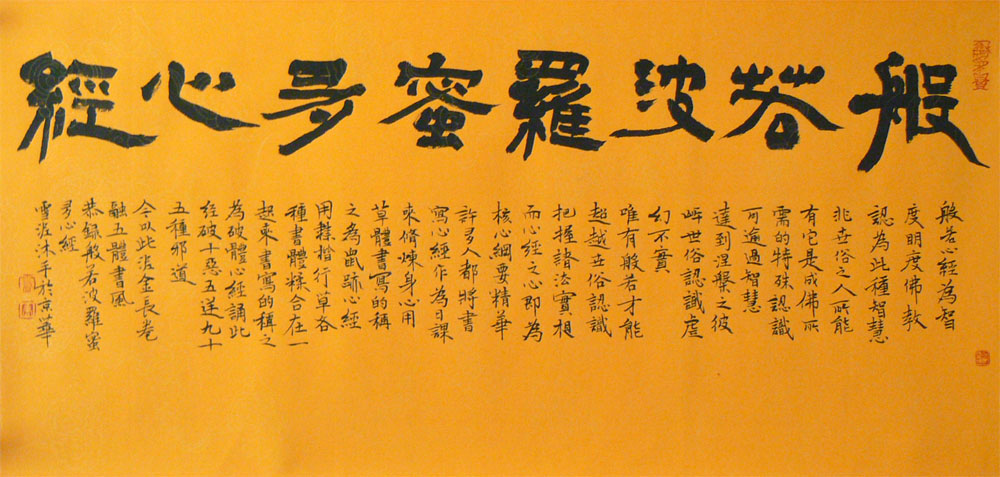 般若波羅蜜多心經
般若心經為智
度明度佛教
認為此種智慧
非世俗之人所能
有它是成佛所
需的特殊認識
可通過智慧
達到涅槃之彼
岸世俗認識虛
幻不實
唯有般若才能
超越世俗認識
把握諸法實相
而心經之心即為
核心綱要精華
許多人都將書
寫心經作為日課
來修煉身心用
草體書寫的稱
之為鼠跡心經
用隸楷行草各
種書體糅合在一
起來書寫的稱之
為破體心經誦此
經破十惡五逆九十
五種邪道
今以此泥金長卷
融五體書風
恭錄般若波羅蜜
多心經
雪泥沐手於京華